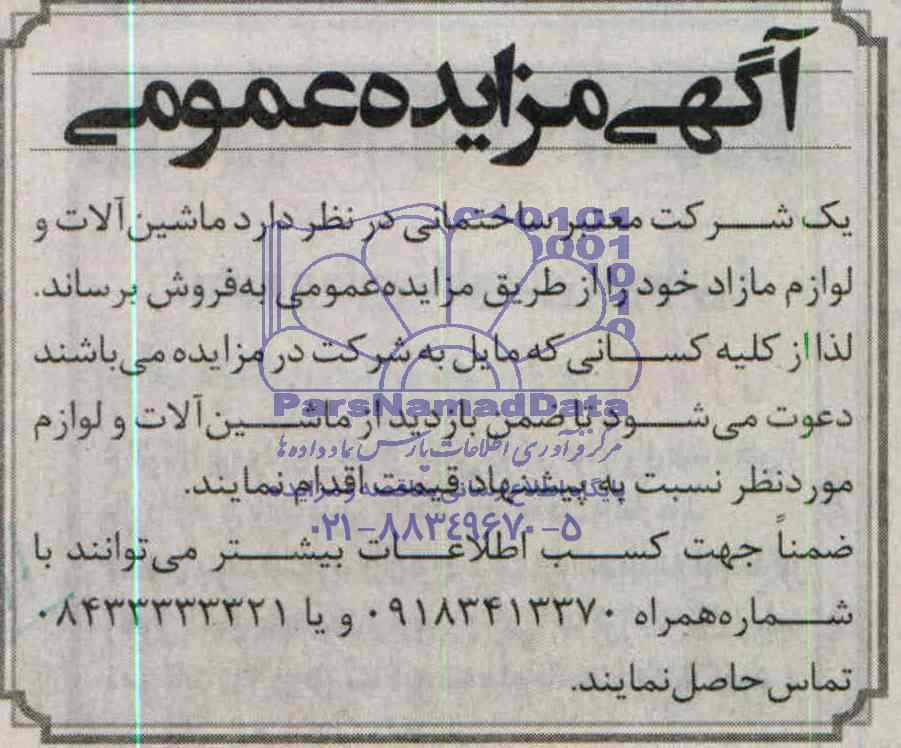 آگهی مزایده عمومی
یک شرکت معتبر ساختمانی در نظر دارد ماشین‌آلات و
لوازم مازاد خود را از طریق مزایده عمومی به‌فروش برساند.
لذا از کلیه کسانی که مایل به شرکت در مزایده می‌باشند
دعوت می‌شود تا ضمن بازدید از ماشین‌آلات و لوازم
موردنظر نسبت به پیشنهاد قیمت اقدام نمایند.
ضمناً جهت کسب اطلاعات بیشتر می‌توانند با
شماره همراه ۰۹۱۸۳۴۱۳۳۷۰ و یا ۰۸۴۳۳۳۳۳۳۲۱
تماس حاصل نمایند.
ParsNamadData
مرکز فرآوری اطلاعات پارس نماد داده ها
۰۲۱-۸۸۳۴۹۶۷۰-۵